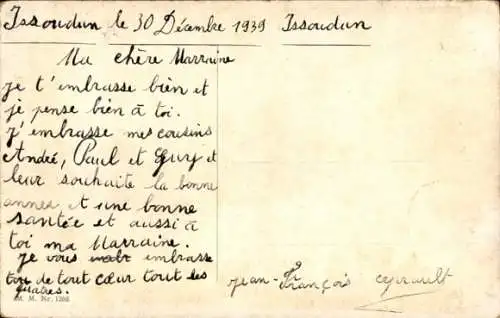 Issoudun le 30 Décembre 1939 Issoudun
Ma chère Marraine
je t'embrasse bien et
je pense bien à toi.
J'embrasse mes cousins
André, Paul et Guy et
leur souhaite la bonne
année et une bonne
santée et aussi à
toi ma Marraine.
je vous embrasse
de tout cœur tout les
quatres.
Jean-François
M. M. Nr. 1266